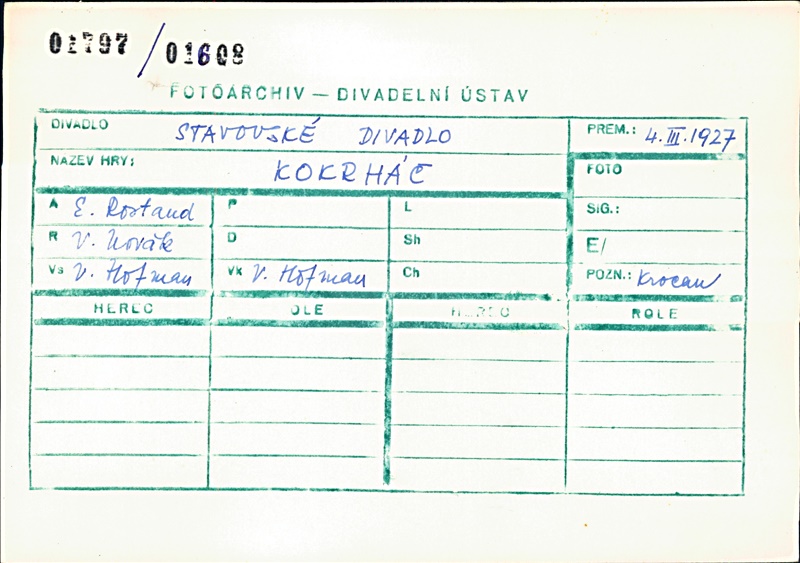 01797/01608
FOTOARCHIV — DIVADELNÍ ÚSTAV
DIVADLO STAVOVSKÉ DIVADLO
PREM.: 4. III. 1927
NÁZEV HRY: KOKRHÁČ
FOTO
A E. Rostand P L
SIG.:
R V. Novák D Sh
E/
Vs V. Hofman Vk V. Hofman Ch
POZN.: Krocan
HEREC OLE HEREC ROLE